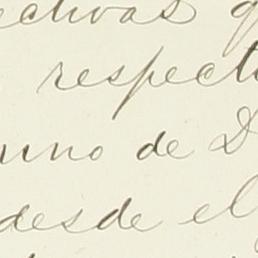 ectivas
respect
uno de D
desde el